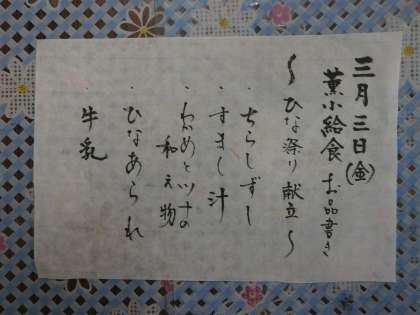 三月三日(金)
薫小給食 お品書き
～ひな祭り献立～
・ちらしずし
・すまし汁
・わかめとツナの
和え物
・ひなあられ
牛乳